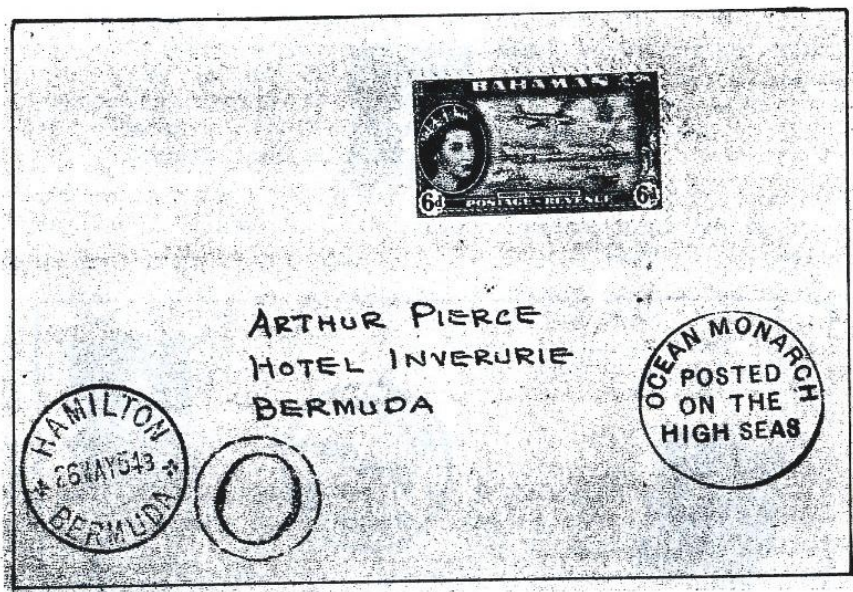 BAHAMAS
6d
POSTAGE & REVENUE
6d
ARTHUR PIERCE
HOTEL INVERURIE
BERMUDA
OCEAN MONARCH
POSTED
ON THE
HIGH SEAS
HAMILTON
BERMUDA